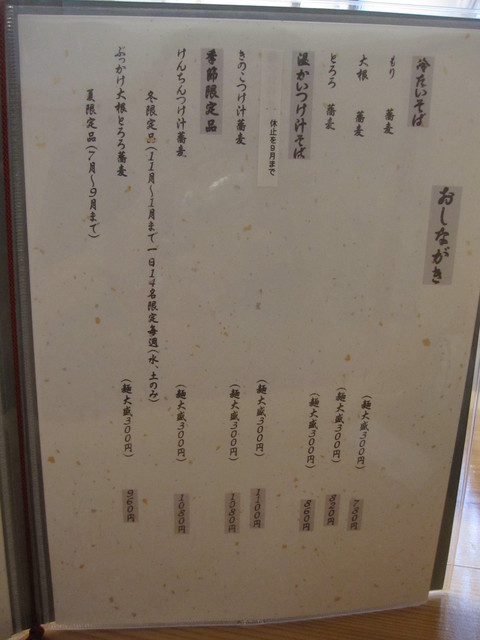 おしながき
冷たいそば
もり 蕎麦 (麺大盛300円) 780円
大根 蕎麦 (麺大盛300円) 820円
とろろ 蕎麦 (麺大盛300円) 860円
温かいつけ汁そば
休止を9月まで (麺大盛300円) 1200円
きのこつけ汁蕎麦 (麺大盛300円) 1080円
季節限定品
けんちんつけ汁蕎麦 (麺大盛300円) 1080円
冬限定品(11月〜1月まで一日14名限定毎週(水、土のみ)
ぶっかけ大根とろろ蕎麦 (麺大盛300円) 960円
夏限定品(7月〜9月まで)